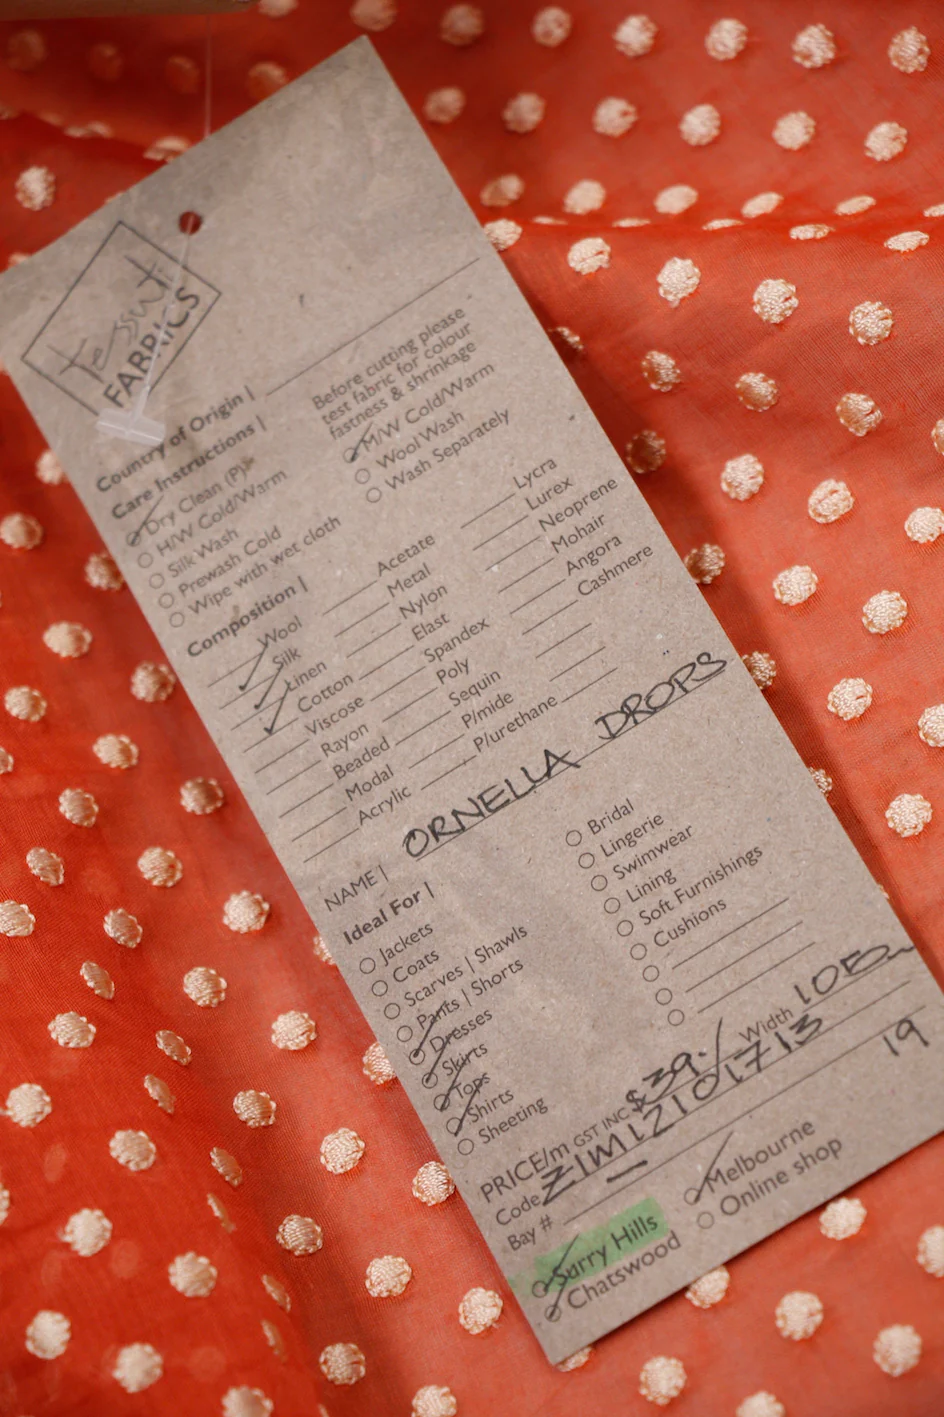 tessuti
FABRICS
Country of Origin |
Before cutting please
test fabric for colour
fastness & shrinkage
Care Instructions |
Dry Clean (P)
H/W Cold/Warm
Silk Wash
Prewash Cold
Wipe with wet cloth
M/W Cold/Warm
Wool Wash
Wash Separately
Composition |
Wool
Silk
Linen
Cotton
Viscose
Rayon
Beaded
Modal
Acrylic
Acetate
Metal
Nylon
Elast
Spandex
Poly
Sequin
P/mide
P/urethane
Lycra
Lurex
Neoprene
Mohair
Angora
Cashmere
NAME | ORNELLA DROPS
Ideal For |
Jackets
Coats
Scarves | Shawls
Pants | Shorts
Dresses
Skirts
Tops
Shirts
Sheeting
Bridal
Lingerie
Swimwear
Lining
Soft Furnishings
Cushions
PRICE/m GST INC. $39.- Width
Code
Bay #
19
Surry Hills
Chatswood
Melbourne
Online shop